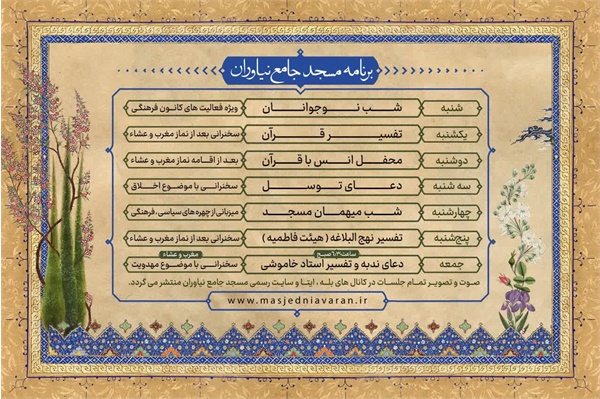 برنامه مسجد جامع نیاوران
شنبه شب نوجوانان ویژه فعالیت های کانون فرهنگی
یکشنبه تفسیر قرآن سخنرانی بعد از نماز مغرب و عشاء
دوشنبه محفل انس با قرآن بعد از اقامه نماز مغرب و عشاء
سه شنبه دعای توسل سخنرانی با موضوع اخلاق
چهارشنبه شب میهمان مسجد میزبانی از چهره های سیاسی، فرهنگی
پنج‌شنبه تفسیر نهج البلاغه (هیئت فاطمیه) سخنرانی بعد از نماز مغرب و عشاء
مغرب و عشاء
جمعه دعای ندبه و تفسیر استاد خاموشی سخنرانی با موضوع مهدویت
صوت و تصویر تمام جلسات در کانال های بله، ایتا و سایت رسمی مسجد جامع نیاوران منتشر می گردد.
www.masjedniavaran.ir